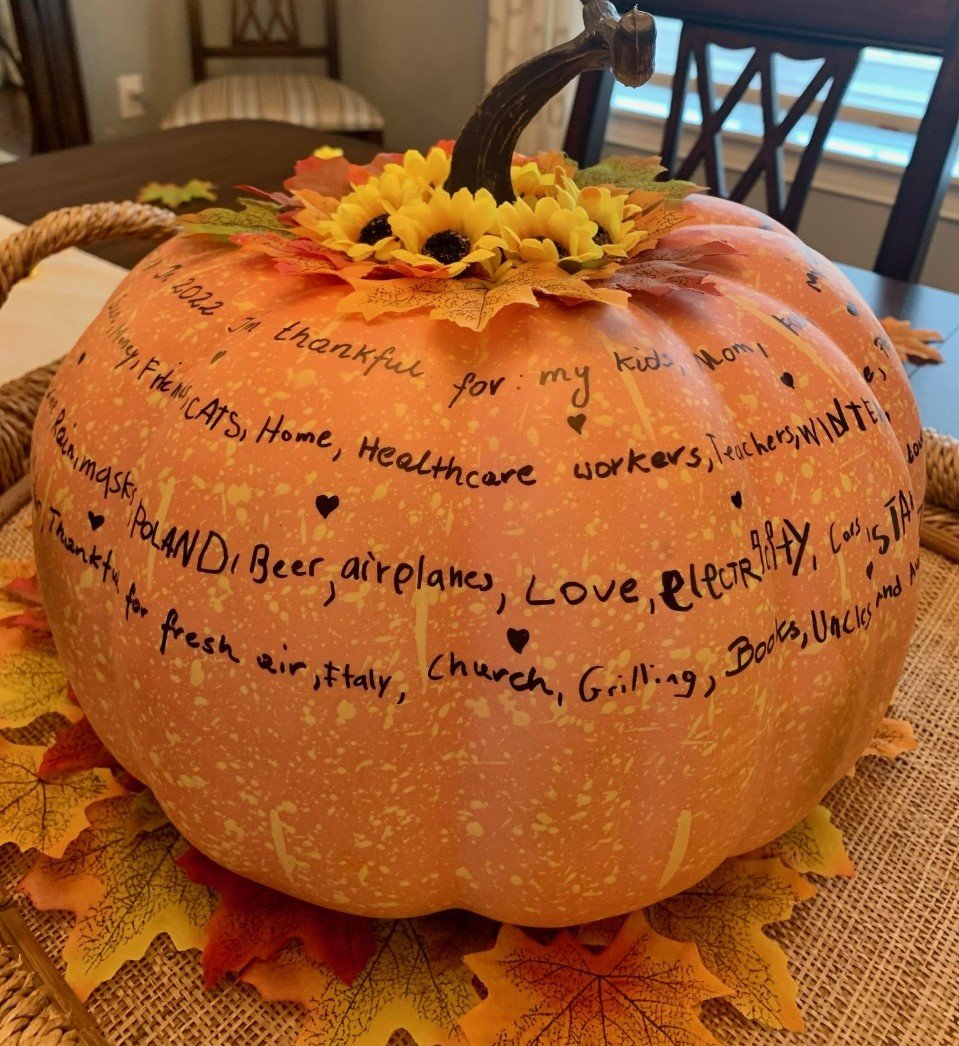 2022 I'm thankful for: my kids, Mom,
Money, Friends, CATS, Home, Healthcare workers, Teachers, WINTER,
Rain, masks, POLAND, Beer, airplanes, Love, electricity, Cars
Thankful for fresh air, Italy, Church, Grilling, Books, Uncles and